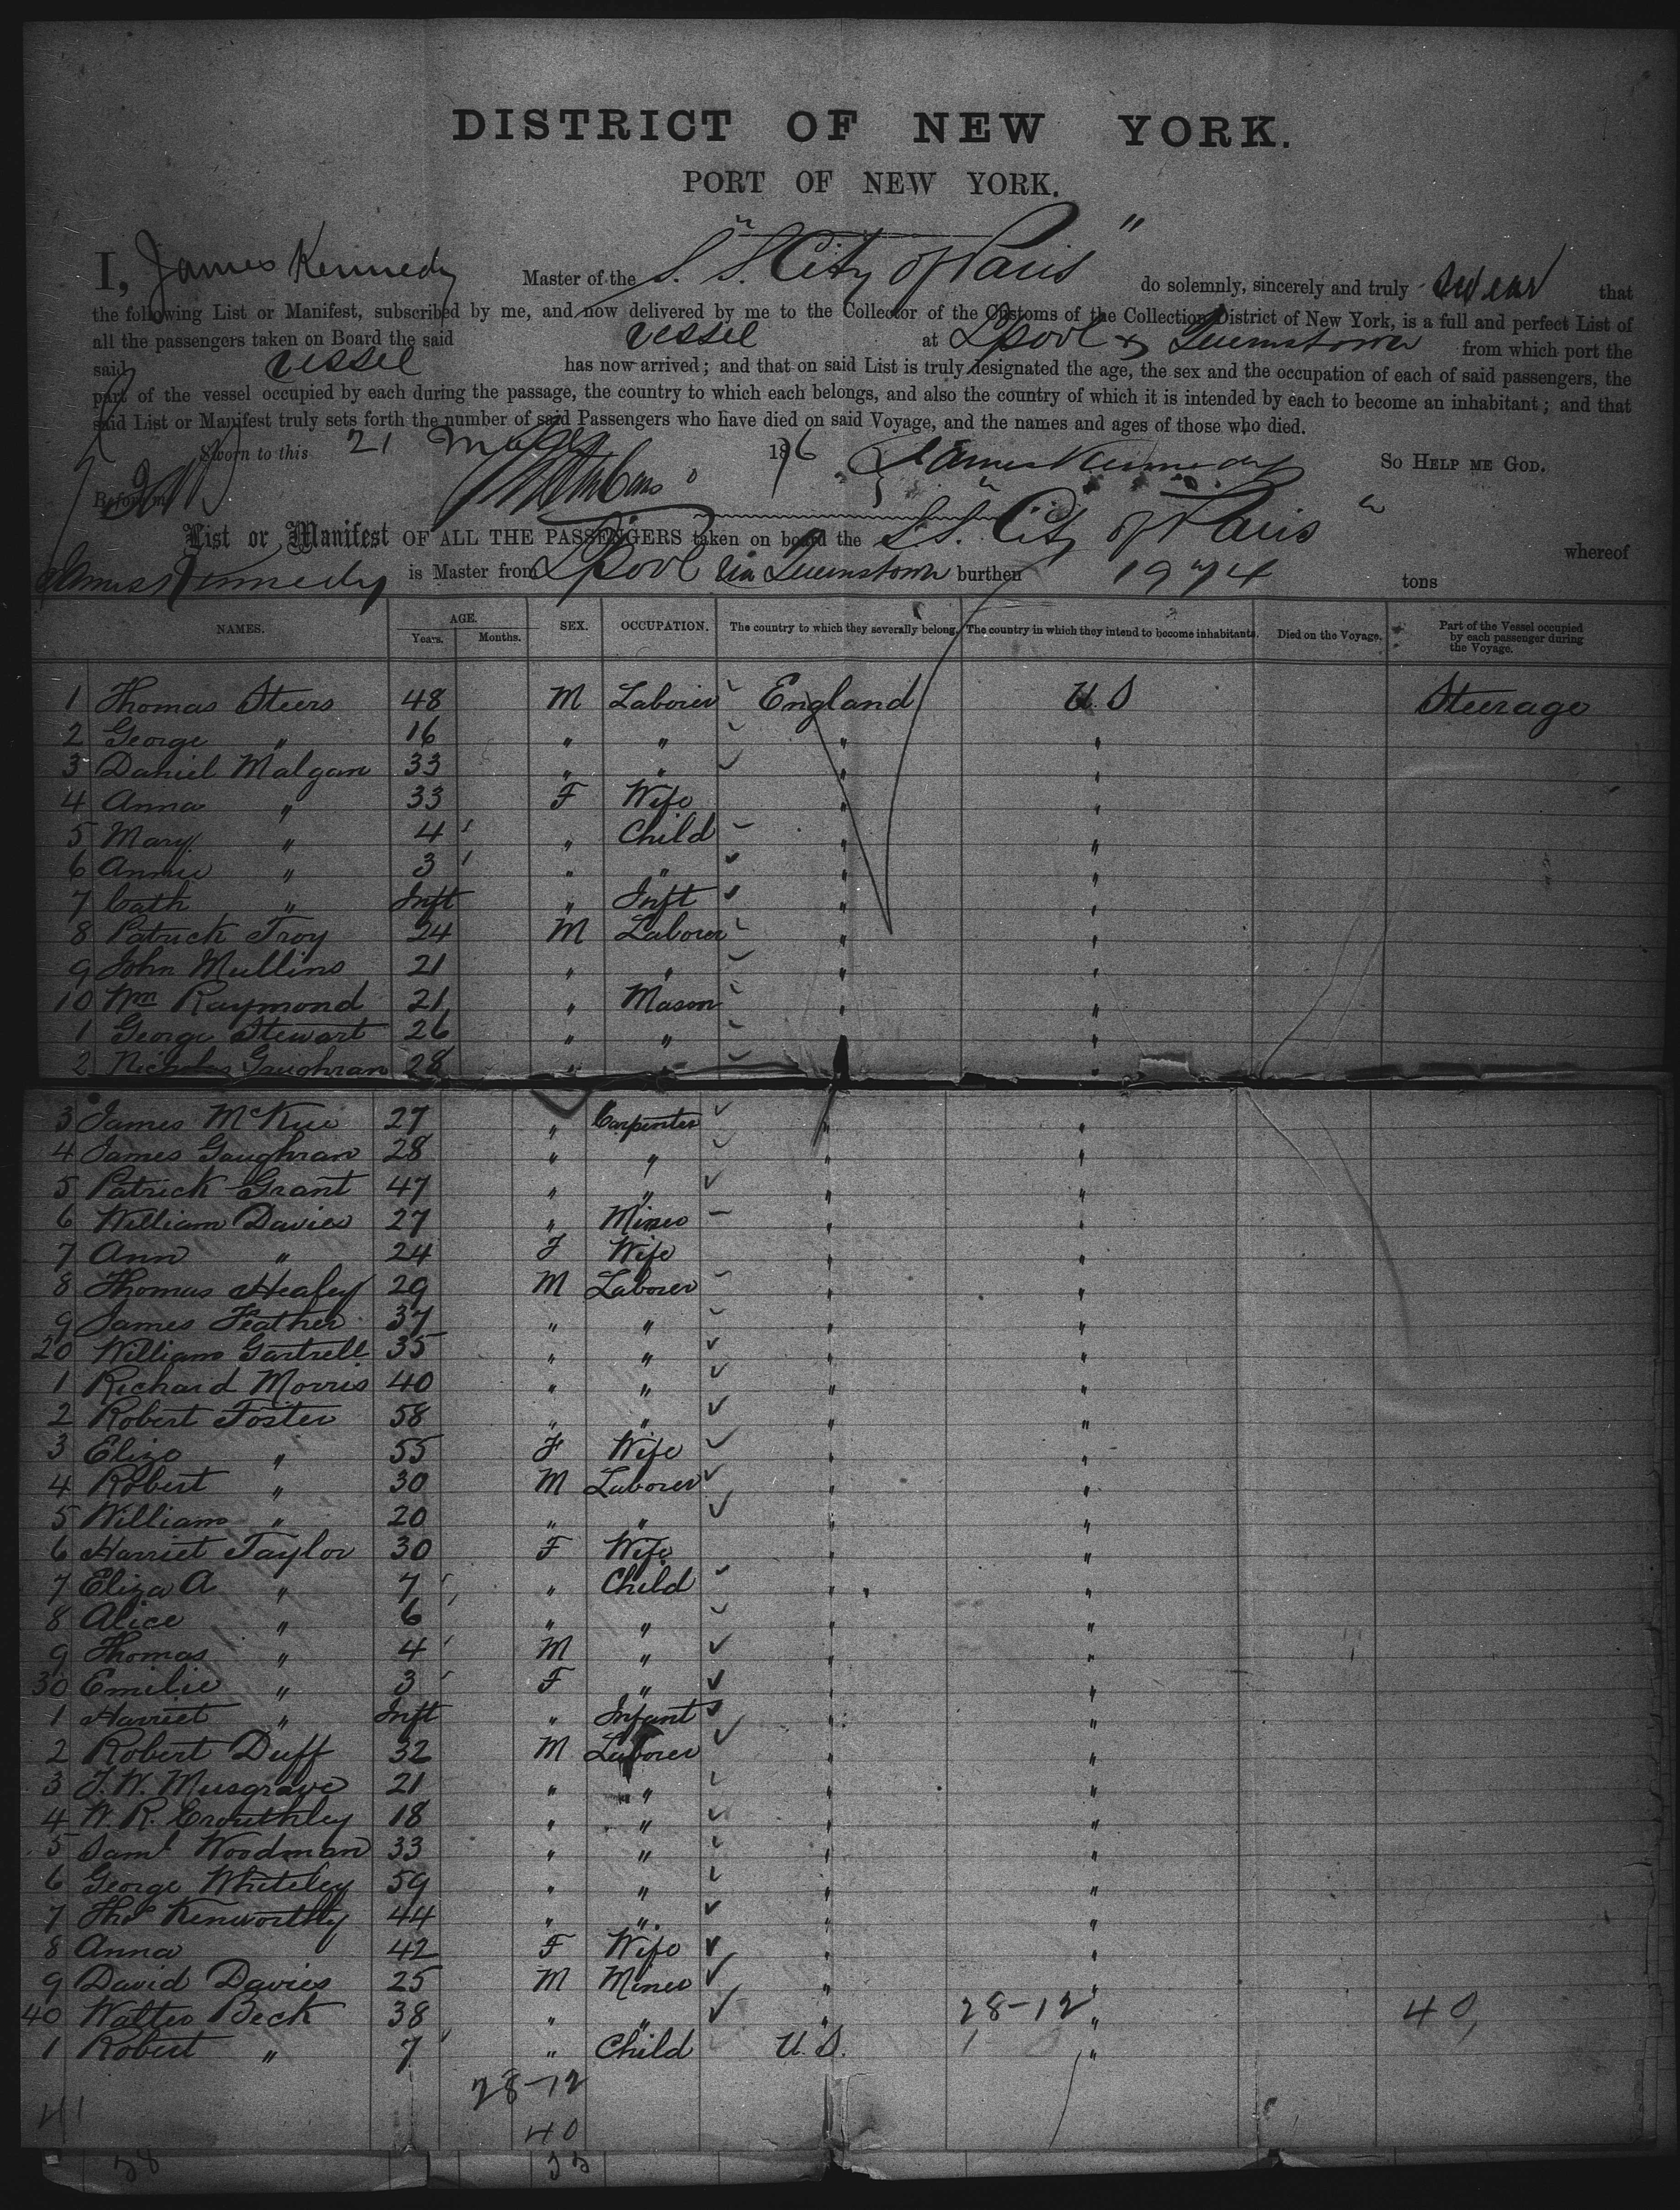 DISTRICT OF NEW YORK.
PORT OF NEW YORK.
I, James Kennedy Master of the "S. S. City of Paris" do solemnly, sincerely and truly swear that
the following List or Manifest, subscribed by me, and now delivered by me to the Collector of the Customs of the Collection District of New York, is a full and perfect List of
all the passengers taken on Board the said vessel at Lpool & Queenstown from which port the
said vessel has now arrived; and that on said List is truly designated the age, the sex and the occupation of each of said passengers, the
part of the vessel occupied by each during the passage, the country to which each belongs, and also the country of which it is intended by each to become an inhabitant; and that
said List or Manifest truly sets forth the number of said Passengers who have died on said Voyage, and the names and ages of those who died.
Sworn to this 21 1876 James Kennedy SO HELP ME GOD.
Before me
List or Manifest OF ALL THE PASSENGERS taken on board the "S.S. City of Paris" whereof
James Kennedy is Master from Lpool via Queenstown burthen 1974 tons
NAMES. AGE. Years. Months. SEX. OCCUPATION. The country to which they severally belong. The country in which they intend to become inhabitants. Died on the Voyage. Part of the Vessel occupied by each passenger during the Voyage.
1 Thomas Steers 48 M Laborer England U.S Steerage
2 George " 16 " " " "
3 Daniel Malgan 33 " " " "
4 Anna " 33 F Wife " "
5 Mary " 4 " Child " "
6 Annie " 3 " " " "
7 Cath " Inft " Inft " "
8 Patrick Troy 24 M Laborer " "
9 John Mullins 21 " " " "
10 Wm Raymond 21 " Mason " "
1 George Stewart 26 " " " "
2 Nicholas Gaughran 28 " " " "
3 James McKue 27 " Carpenter "
4 James Gaughran 28 " " " "
5 Patrick Grant 47 " " " "
6 William Davies 27 " Miner " "
7 Ann " 24 F Wife " "
8 Thomas Heafey 29 M Laborer " "
9 James Feather 37 " " " "
20 William Gartrell 35 " " " "
1 Richard Morris 40 " " " "
2 Robert Foster 58 " " " "
3 Eliza " 55 F Wife " "
4 Robert " 30 M Laborer " "
5 William " 20 " " " "
6 Harriet Taylor 30 F Wife " "
7 Eliza A " 7 " Child " "
8 Alice " 6 " " " "
9 Thomas " 4 M " " "
30 Emilie " 3 F " " "
1 Harriet " Inft " Infant " "
2 Robert Duff 32 M Laborer " "
3 J. W. Musgrave 21 " " " "
4 W. R. Crouthley 18 " " " "
5 Saml Woodman 33 " " " "
6 George Whiteley 59 " " " "
7 Thos Kenworthy 44 " " " "
8 Anna 42 F Wife " "
9 David Davies 25 M Miner " "
40 Walter Beck 38 " " " 28-12 " 40
1 Robert " 7 " Child U.S. "
28-12
41 40